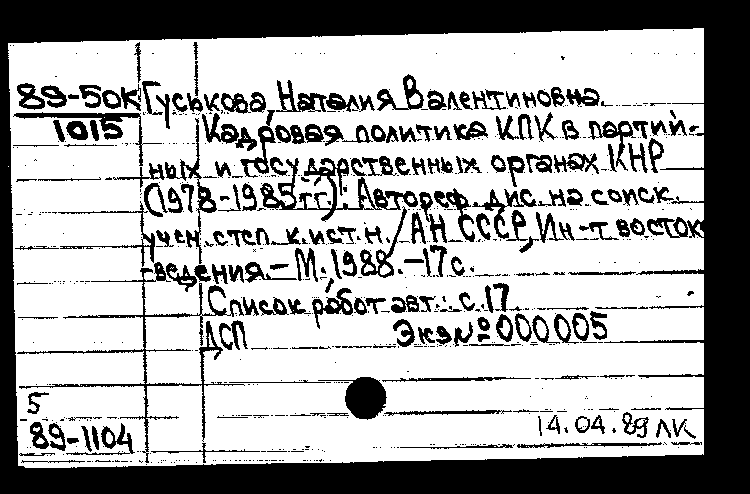 89-50к Гуськова, Наталия Валентиновна.
1015 Кадровая политика КПК в партий-
ных и государственных органах КНР
(1978-1985гг): Автореф. дис. на соиск.
учен. степ. к.ист.н. / АН СССР, Ин-т восток
-ведения. - М. 1988. - 17 с.
Список работ авт.: с. 17.
ДСП Экз № 000005
5
89-1104
14.04.89 ЛК